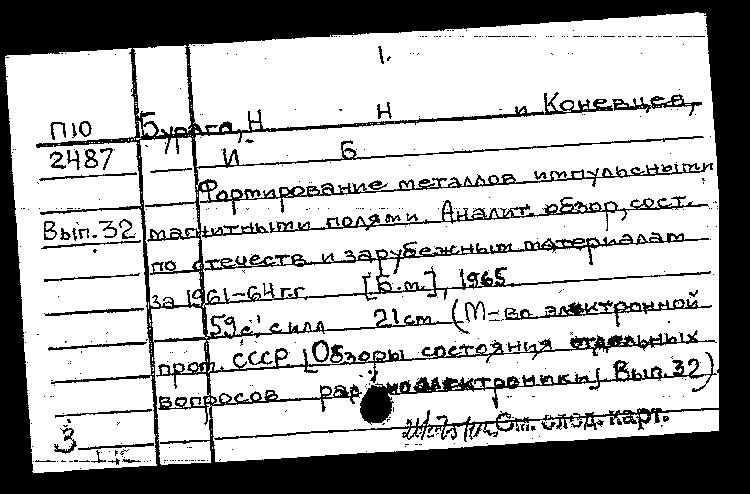 1.
П10 Бурага, Н Н и Коневцев,
2487 И Б
Формирование металлов импульсными
Вып. 32 магнитными полями. Аналит. обзор, сост.
по отечеств. и зарубежным материалам
за 1961-64 г.г. [Б.м.], 1965.
59 с. с илл 21 см (М-во электронной
пром. СССР. [Обзоры состояния отдельных
вопросов радиоэлектроники]. Вып. 32).
См. след. карт.
3